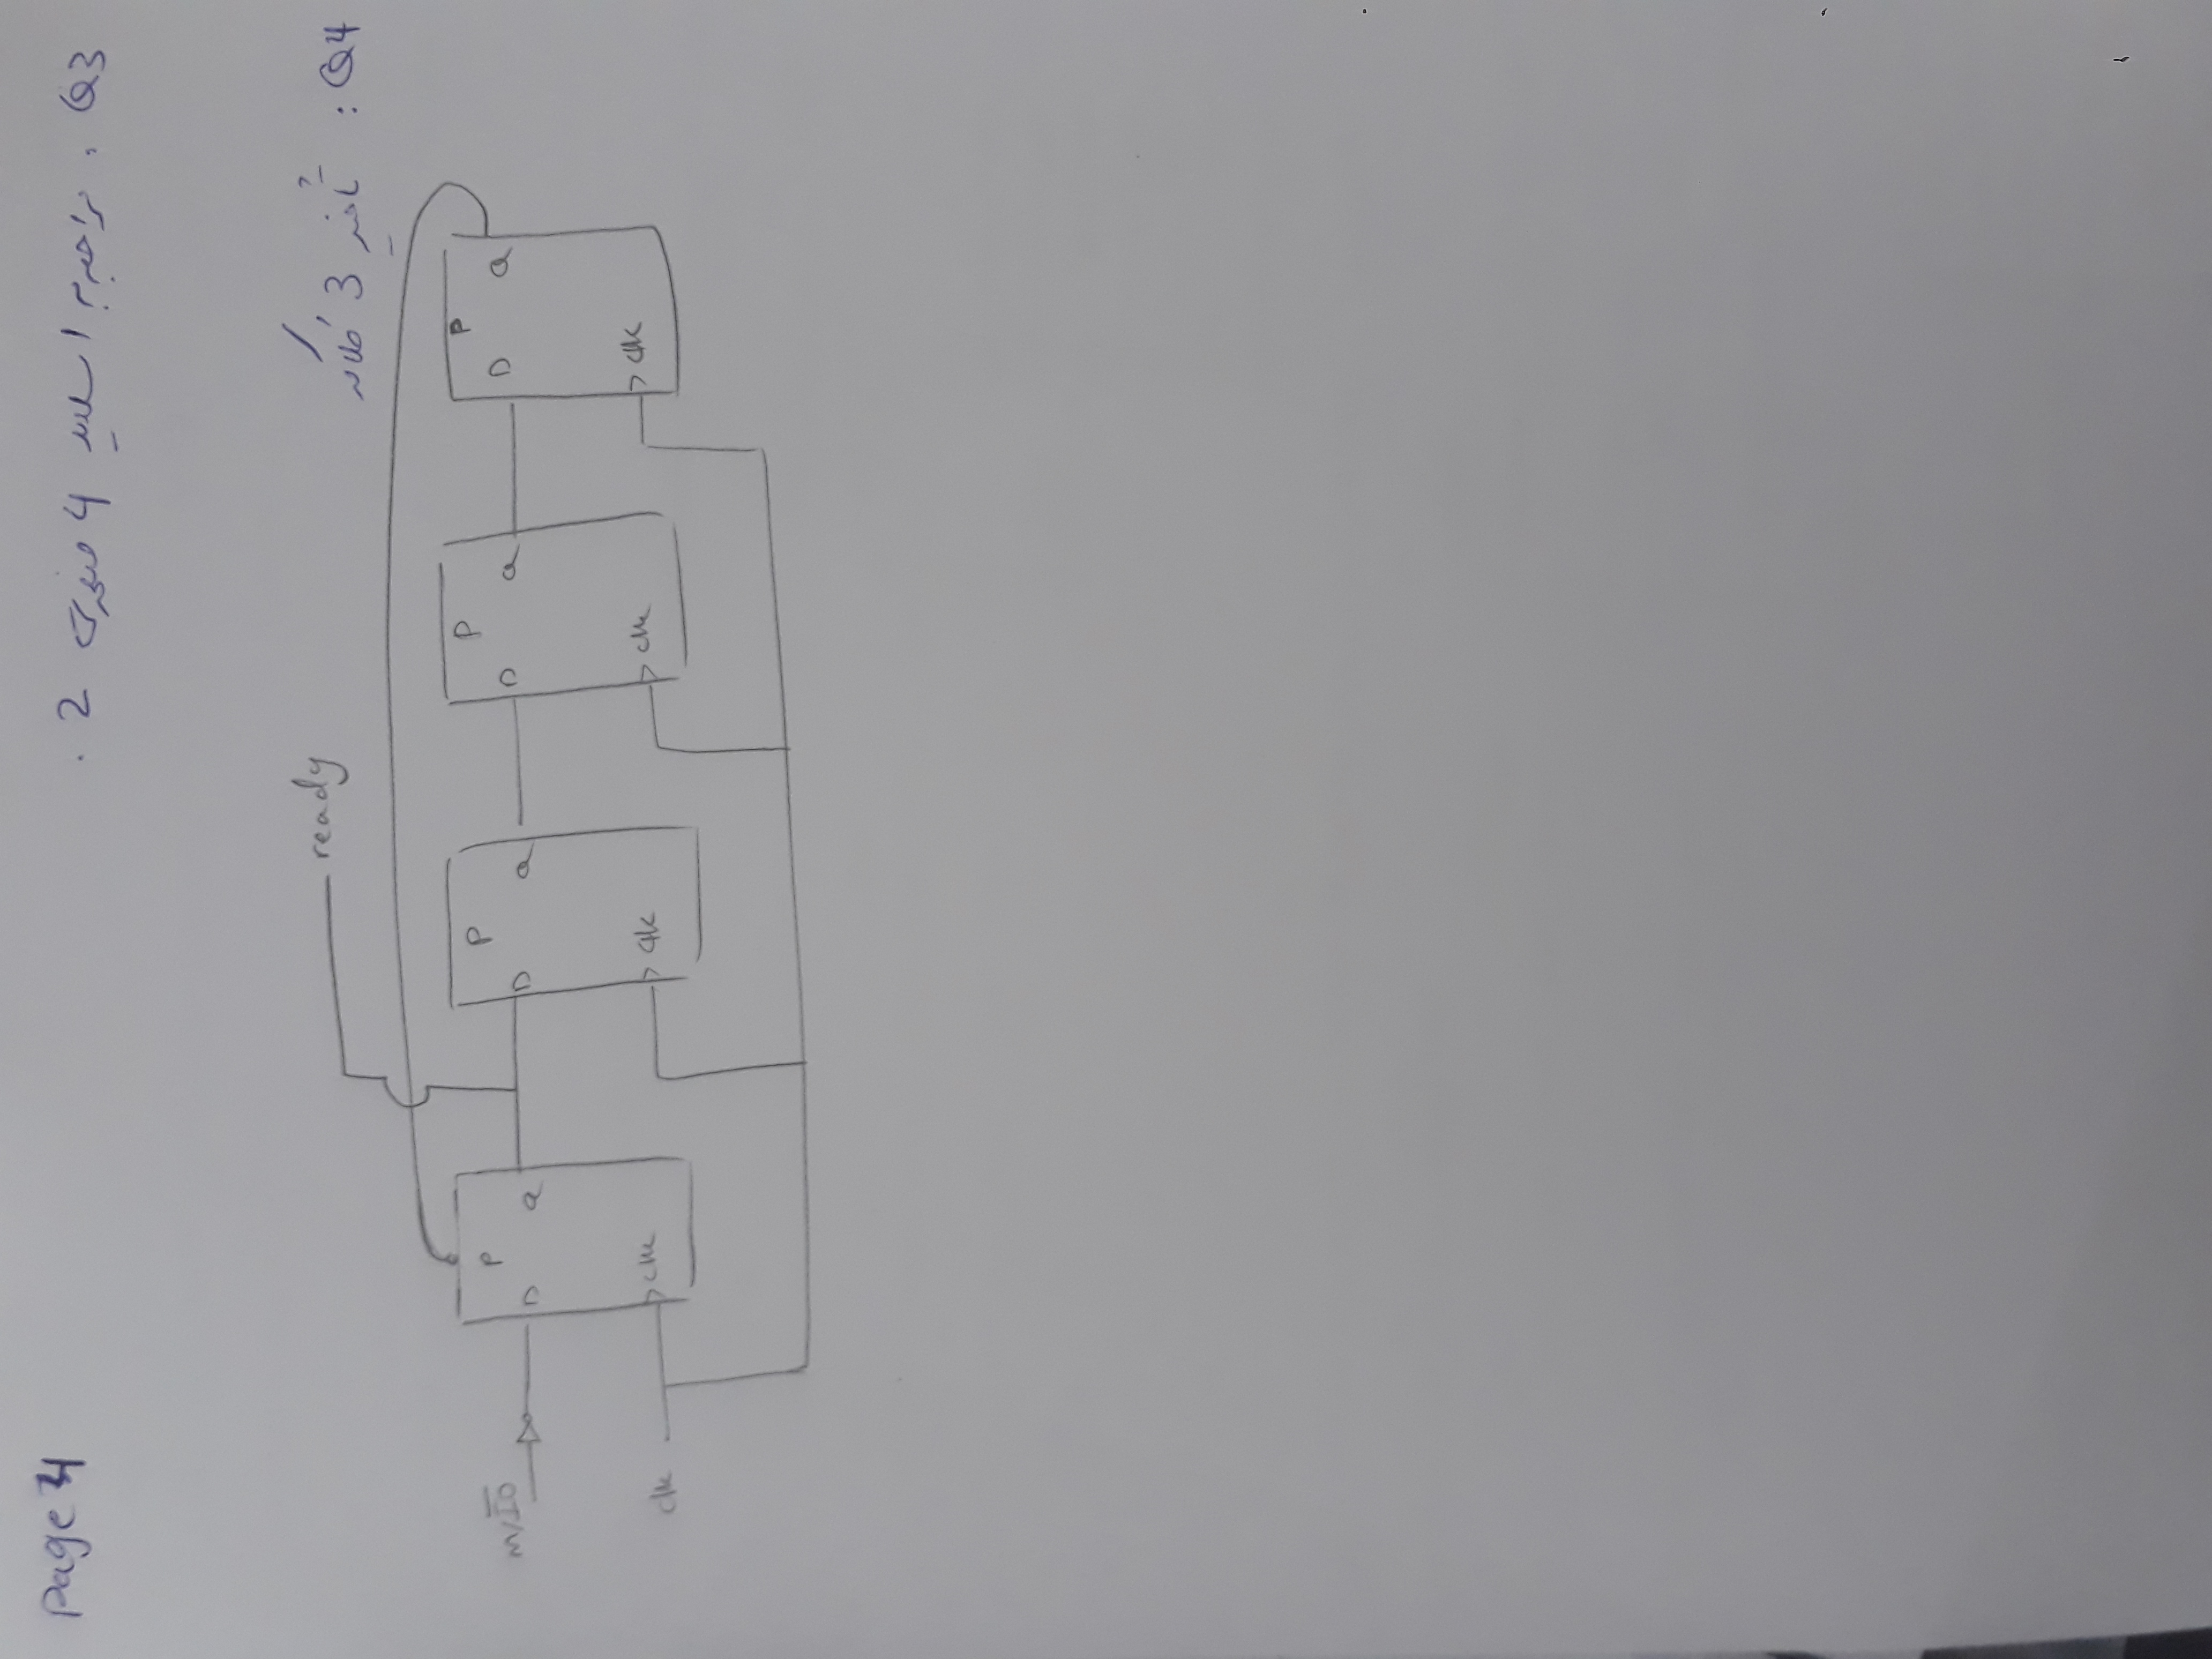 Page 4
Q3 : مراجعه به اسلاید 4 صفحه‌ی 2 .
Q4 : تأخیر 3 کلاکه
ready
M/I̅O̅
P
D
Q
clk
P
D
Q
clk
P
D
Q
clk
P
D
Q
clk
clk